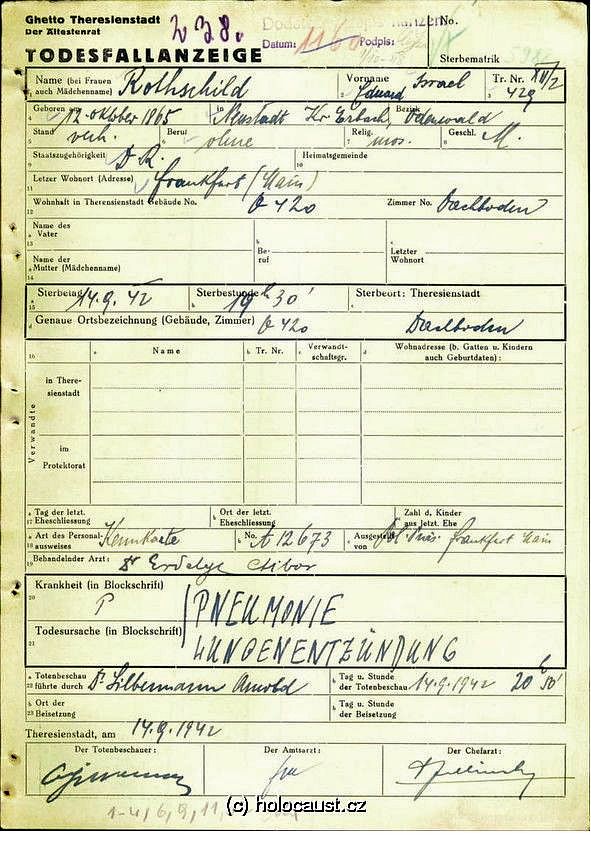 Ghetto Theresienstadt
Der Ältestenrat
TODESFALLANZEIGE
238.
Datum: 1160 Podpis:
No.
Sterbematrik
Name (bei Frauen auch Mädchenname) Rothschild
Vorname Eduard Israel
Tr. Nr. XII/2
429
Geboren am 12. Oktober 1865 in Neustadt Kr Erbach, Bezirk Odenwald
Stand verh. Beruf ohne Relig. mos. Geschl. M.
Staatszugehörigkeit D. R. Heimatsgemeinde
Letzer Wohnort (Adresse) Frankfurt (Main)
Wohnhaft in Theresienstadt Gebäude No. Q 420 Zimmer No. Dachboden
Name des Vater
Beruf
Letzter Wohnort
Name der Mutter (Mädchenname)
Sterbetag 14. 9. 42 Sterbestunde 19h 30' Sterbeort: Theresienstadt
Genaue Ortsbezeichnung (Gebäude, Zimmer) Q 420 Dachboden
Name Tr. Nr. Verwandtschaftsgr. Wohnadresse (b. Gatten u. Kindern auch Geburtdaten):
Verwandte
in Theresienstadt
im Protektorat
Tag der letzt. Eheschliessung
Ort der letzt. Eheschliessung
Zahl d, Kinder aus letzt. Ehe
Art des Personalausweises Kennkarte No. A 12673 Ausgestellt von Pol. Präs. Frankfurt Main
Behandelnder Arzt: Dr Erdelyi Ctibor
Krankheit (in Blockschrift) P PNEUMONIE
Todesursache (in Blockschrift) LUNGENENTZÜNDUNG
Totenbeschau führte durch Dr. Silbermann Arnold
Tag u. Stunde der Totenbeschau 14. 9. 1942 20h 30'
Ort der Beisetzung
Tag u. Stunde der Beisetzung
Theresienstadt, am 14. 9. 1942
Der Totenbeschauer:
Der Amtsarzt:
Der Chefarzt:
(c) holocaust.cz